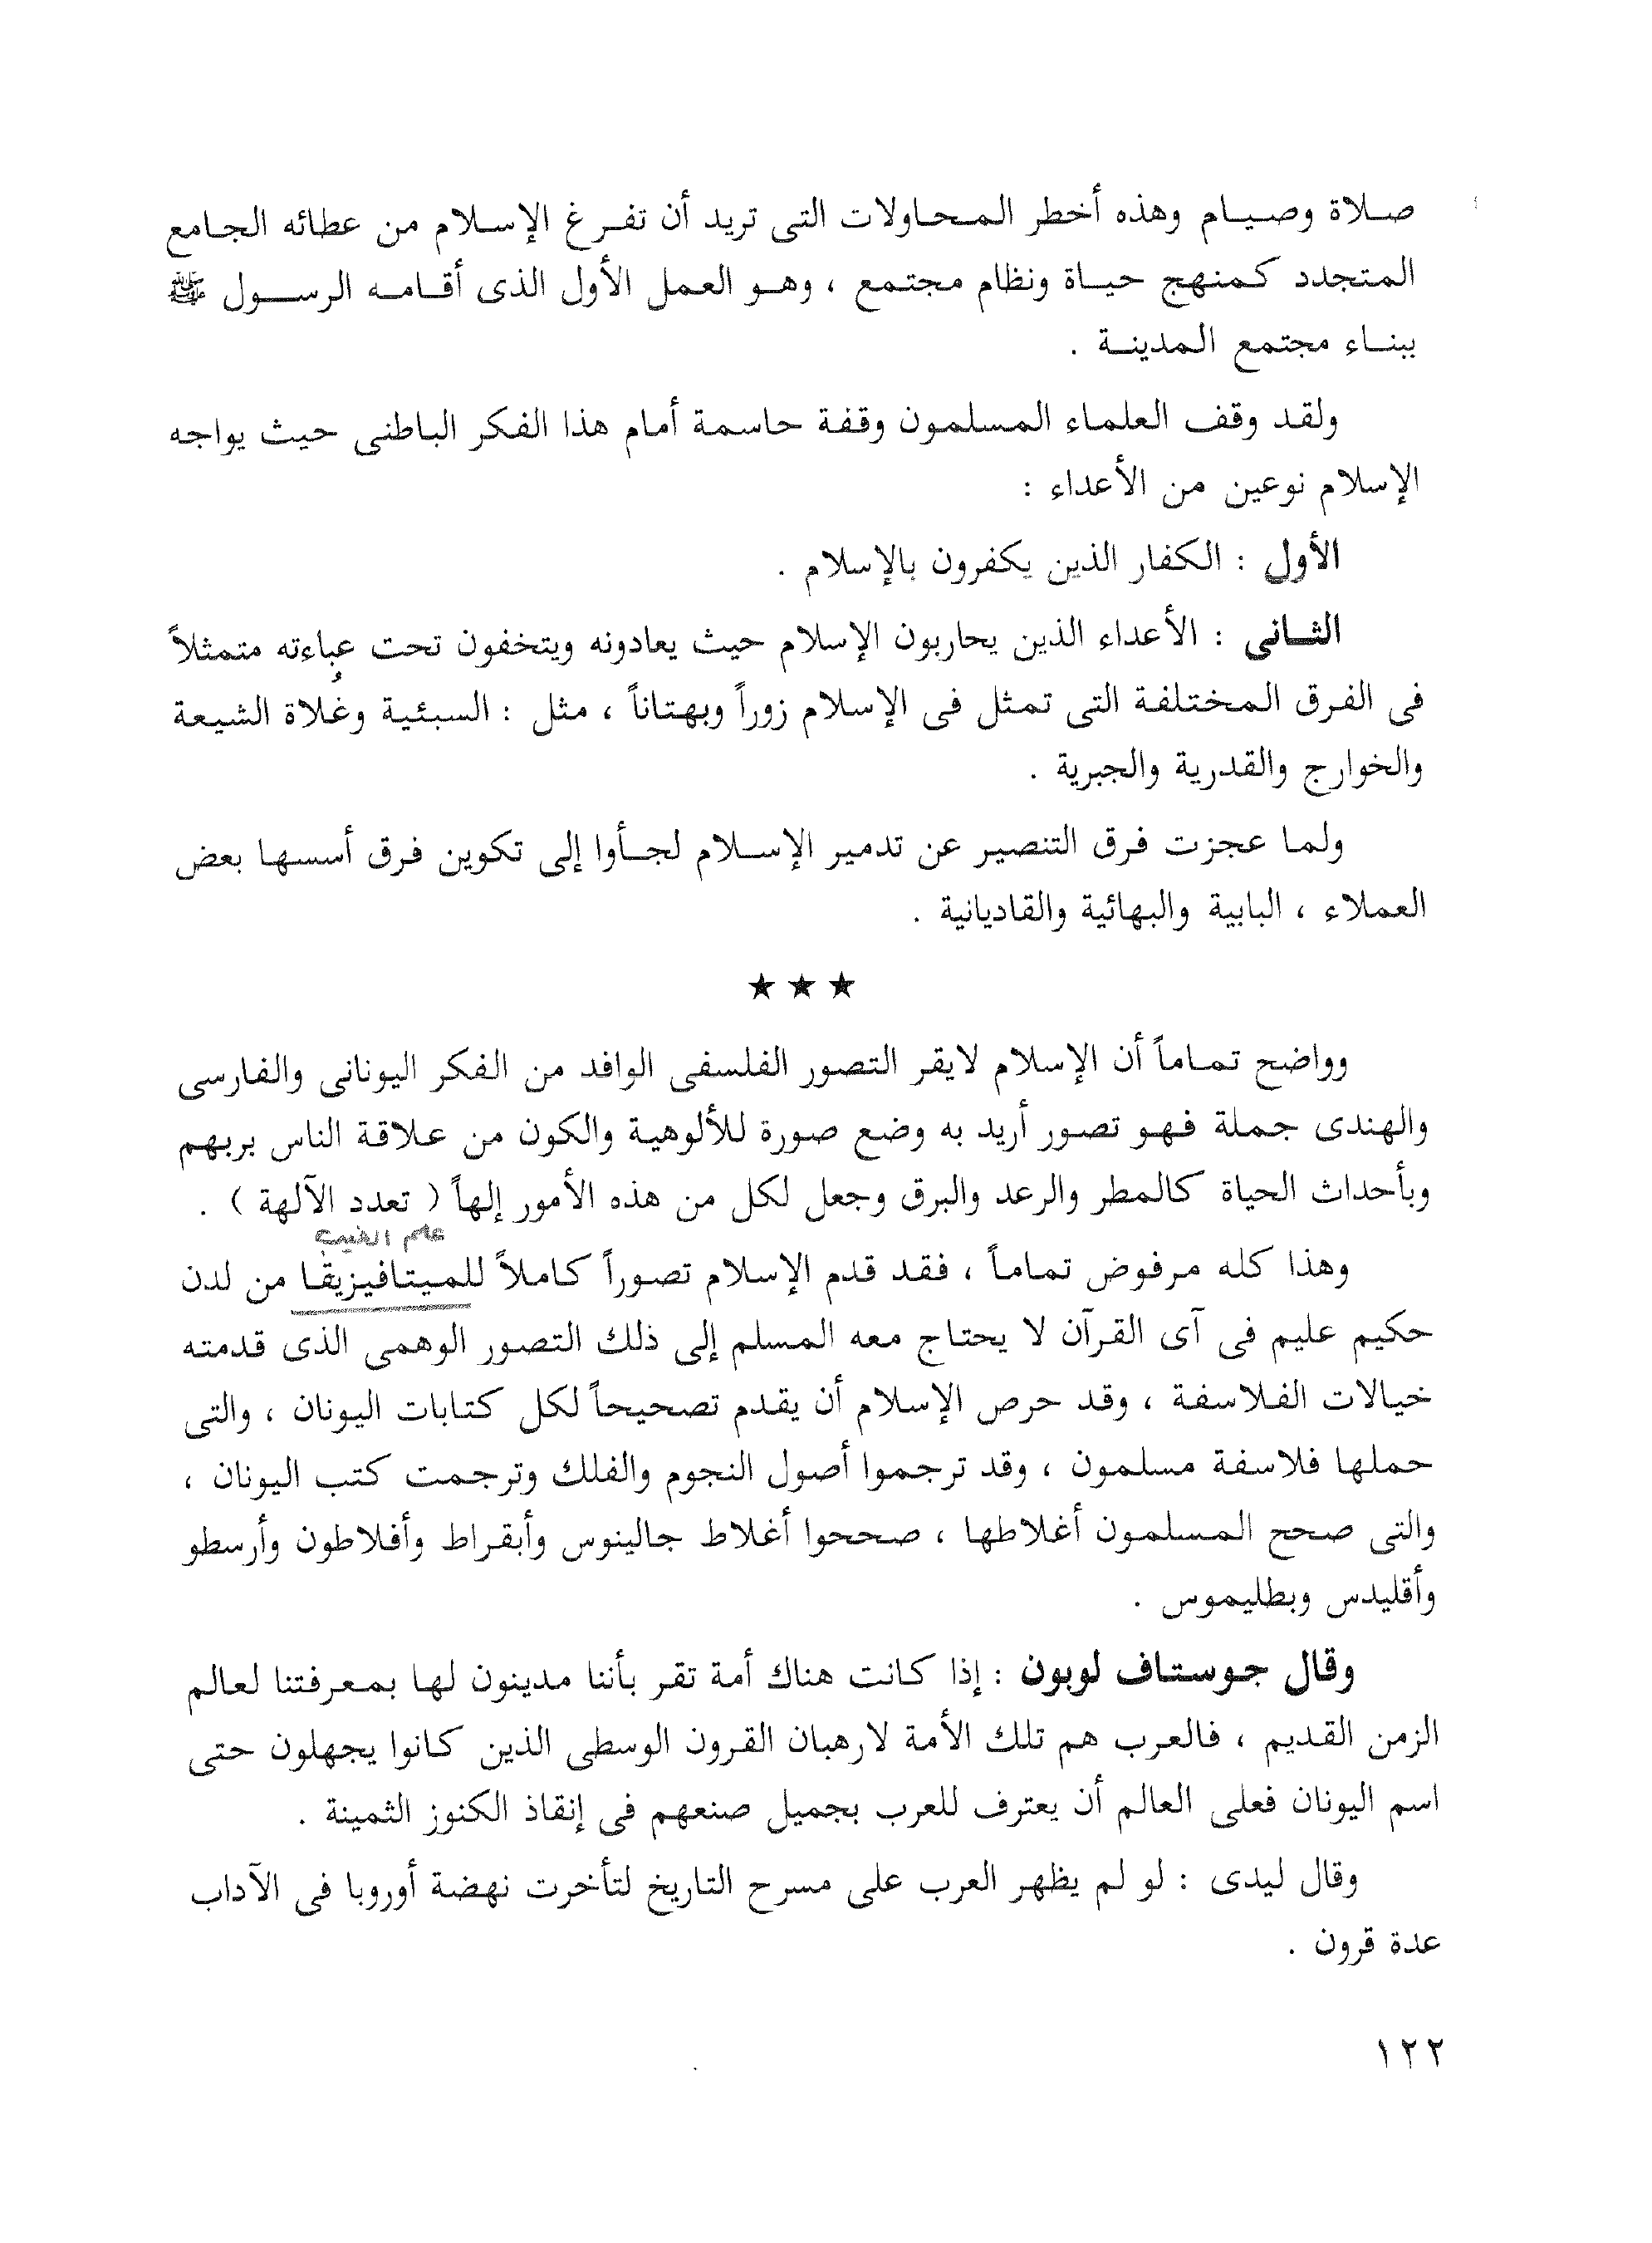 صلاة وصيام وهذه أخطر المحاولات التى تريد أن تفرغ الإسلام من عطائه الجامع
المتجدد كمنهج حياة ونظام مجتمع ، وهو العمل الأول الذى أقامه الرسول ﷺ
ببناء مجتمع المدينة .
ولقد وقف العلماء المسلمون وقفة حاسمة أمام هذا الفكر الباطنى حيث يواجه
الإسلام نوعين من الأعداء :
الأول : الكفار الذين يكفرون بالإسلام .
الثانى : الأعداء الذين يحاربون الإسلام حيث يعادونه ويتخفون تحت عباءته متمثلاً
فى الفرق المختلفة التى تمثل فى الإسلام زوراً وبهتاناً ، مثل : السبئية وغُلاة الشيعة
والخوارج والقدرية والجبرية .
ولما عجزت فرق التنصير عن تدمير الإسلام لجأوا إلى تكوين فرق أسسها بعض
العملاء ، البابية والبهائية والقاديانية .
★ ★ ★
وواضح تماماً أن الإسلام لايقر التصور الفلسفى الوافد من الفكر اليونانى والفارسى
والهندى جملة فهو تصور أريد به وضع صورة للألوهية والكون من علاقة الناس بربهم
وبأحداث الحياة كالمطر والرعد والبرق وجعل لكل من هذه الأمور إلهاً ( تعدد الآلهة ) .
علم الغيب
وهذا كله مرفوض تماماً ، فقد قدم الإسلام تصوراً كاملاً للميتافيزيقا من لدن
حكيم عليم فى آى القرآن لا يحتاج معه المسلم إلى ذلك التصور الوهمى الذى قدمته
خيالات الفلاسفة ، وقد حرص الإسلام أن يقدم تصحيحاً لكل كتابات اليونان ، والتى
حملها فلاسفة مسلمون ، وقد ترجموا أصول النجوم والفلك وترجمت كتب اليونان ،
والتى صحح المسلمون أغلاطها ، صححوا أغلاط جالينوس وأبقراط وأفلاطون وأرسطو
وأقليدس وبطليموس .
وقال جوستاف لوبون : إذا كانت هناك أمة تقر بأننا مدينون لها بمعرفتنا لعالم
الزمن القديم ، فالعرب هم تلك الأمة لارهبان القرون الوسطى الذين كانوا يجهلون حتى
اسم اليونان فعلى العالم أن يعترف للعرب بجميل صنعهم فى إنقاذ الكنوز الثمينة .
وقال ليدى : لو لم يظهر العرب على مسرح التاريخ لتأخرت نهضة أوروبا فى الآداب
عدة قرون .
١٢٢